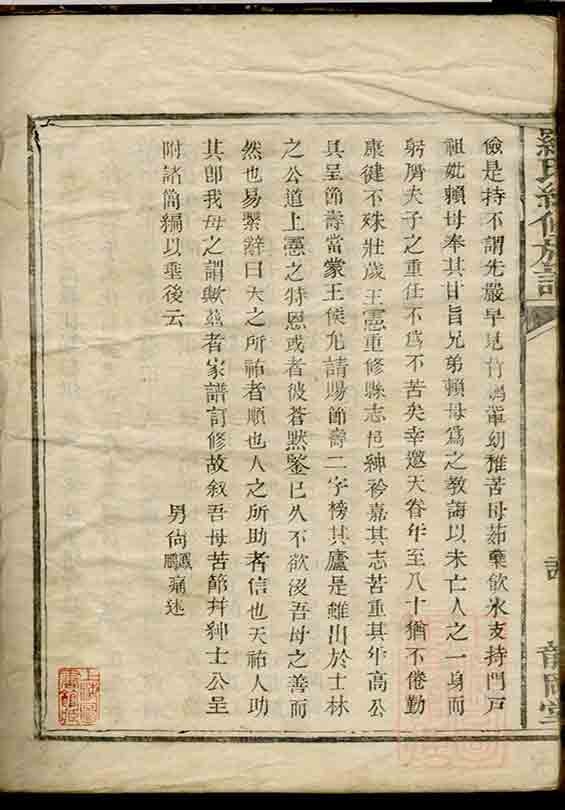 儉是持不謂先嚴早見竹鵑輩幼稚苦母茹蘗飲氷支持門戸
祖妣賴母奉其甘旨兄弟賴母爲之教誨以未亡人之一身而
躬肩夫子之重任不爲不苦矣幸邀天眷年至八十猶不倦勤
康健不殊壯歲王憲重修縣志邑紳衿嘉其志苦重其年高公
具呈節壽當蒙王侯允請賜節壽二字榜其廬是雖出於士林
之公道上憲之特恩或者彼蒼黙鑒已久不欲沒吾母之善而
然也易繋辭曰天之所祐者順也人之所助者信也天祐人功
其卽我母之謂歟兹者家譜訂修故叙吾母苦節并紳士公呈
附諸簡編以垂後云
男尚鵬痛述
羅氏續修族譜